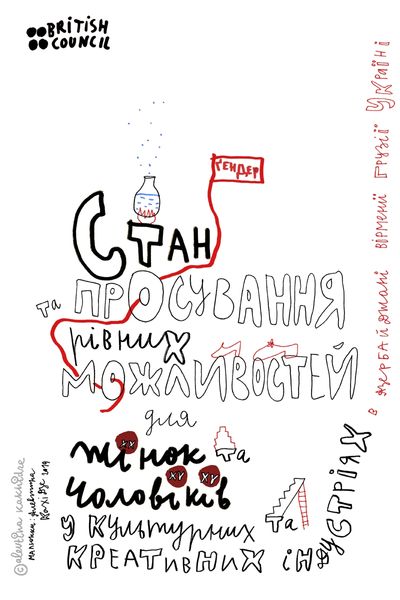 BRITISH
COUNCIL
ГЕНДЕР
СТАН
та ПРОСУВАННЯ
рівних
МОЖЛИВОСТЕЙ
для
жінок та
чоловіків
у культурних та
креативних індустріях
в Азербайджані Вірменії Грузії Україні
©alevtina kakhidze
малюнки: Алевтина
Кахідзе 2019